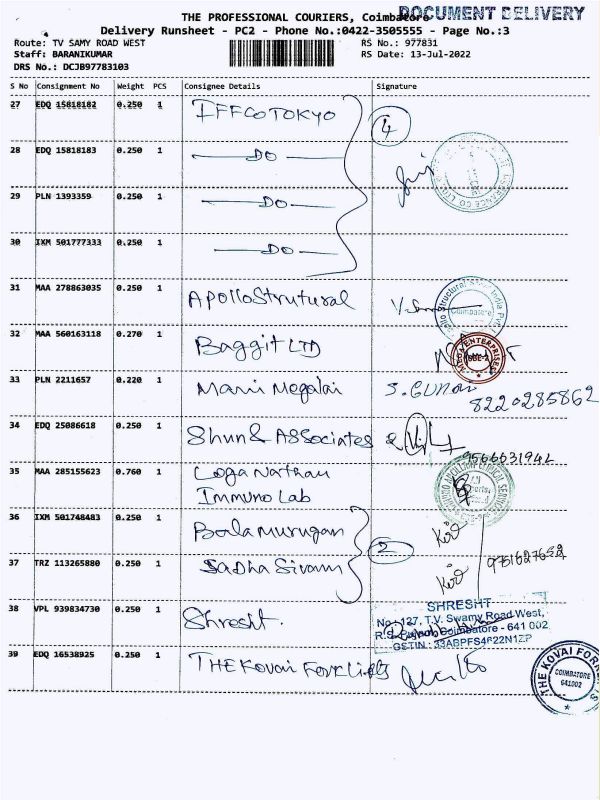 THE PROFESSIONAL COURIERS, Coimbatore
DOCUMENT DELIVERY
Delivery Runsheet - PC2 - Phone No.:0422-3505555 - Page No.:3
Route: TV SAMY ROAD WEST
RS No.: 977831
Staff: BARANIKUMAR
RS Date: 13-Jul-2022
DRS No.: DCJB97783103
S No Consignment No Weight PCS Consignee Details Signature
27 EDQ 15818182 0.250 1 IFFCO TOKYO
4
28 EDQ 15818183 0.250 1 DO
29 PLN 1393359 0.250 1 DO
30 IXM 501777333 0.250 1 DO
31 MAA 278863035 0.250 1 Apollo Strutural
32 MAA 560163118 0.270 1 Baggit LTD
33 PLN 2211657 0.220 1 Mani Megalai S. GUNA
8220285862
34 EDQ 25086618 0.250 1 Shun & Associates
9566631942
35 MAA 285155623 0.760 1 Loga Nathan
Immuno Lab
36 IXM 501748483 0.250 1 Bala Murugan
2
37 TRZ 113265880 0.250 1 Sadha Sivam
9751627652
38 VPL 939834730 0.250 1 Shresht.
SHRESHT
No : 127, T.V. Swamy Road West,
R.S. Puram, Coimbatore - 641 002
GSTIN : 33ABPFS4622N1ZP
39 EDQ 16538925 0.250 1 THE KOVAI FORKLifts
THE KOVAI FOR
COIMBATORE
641002